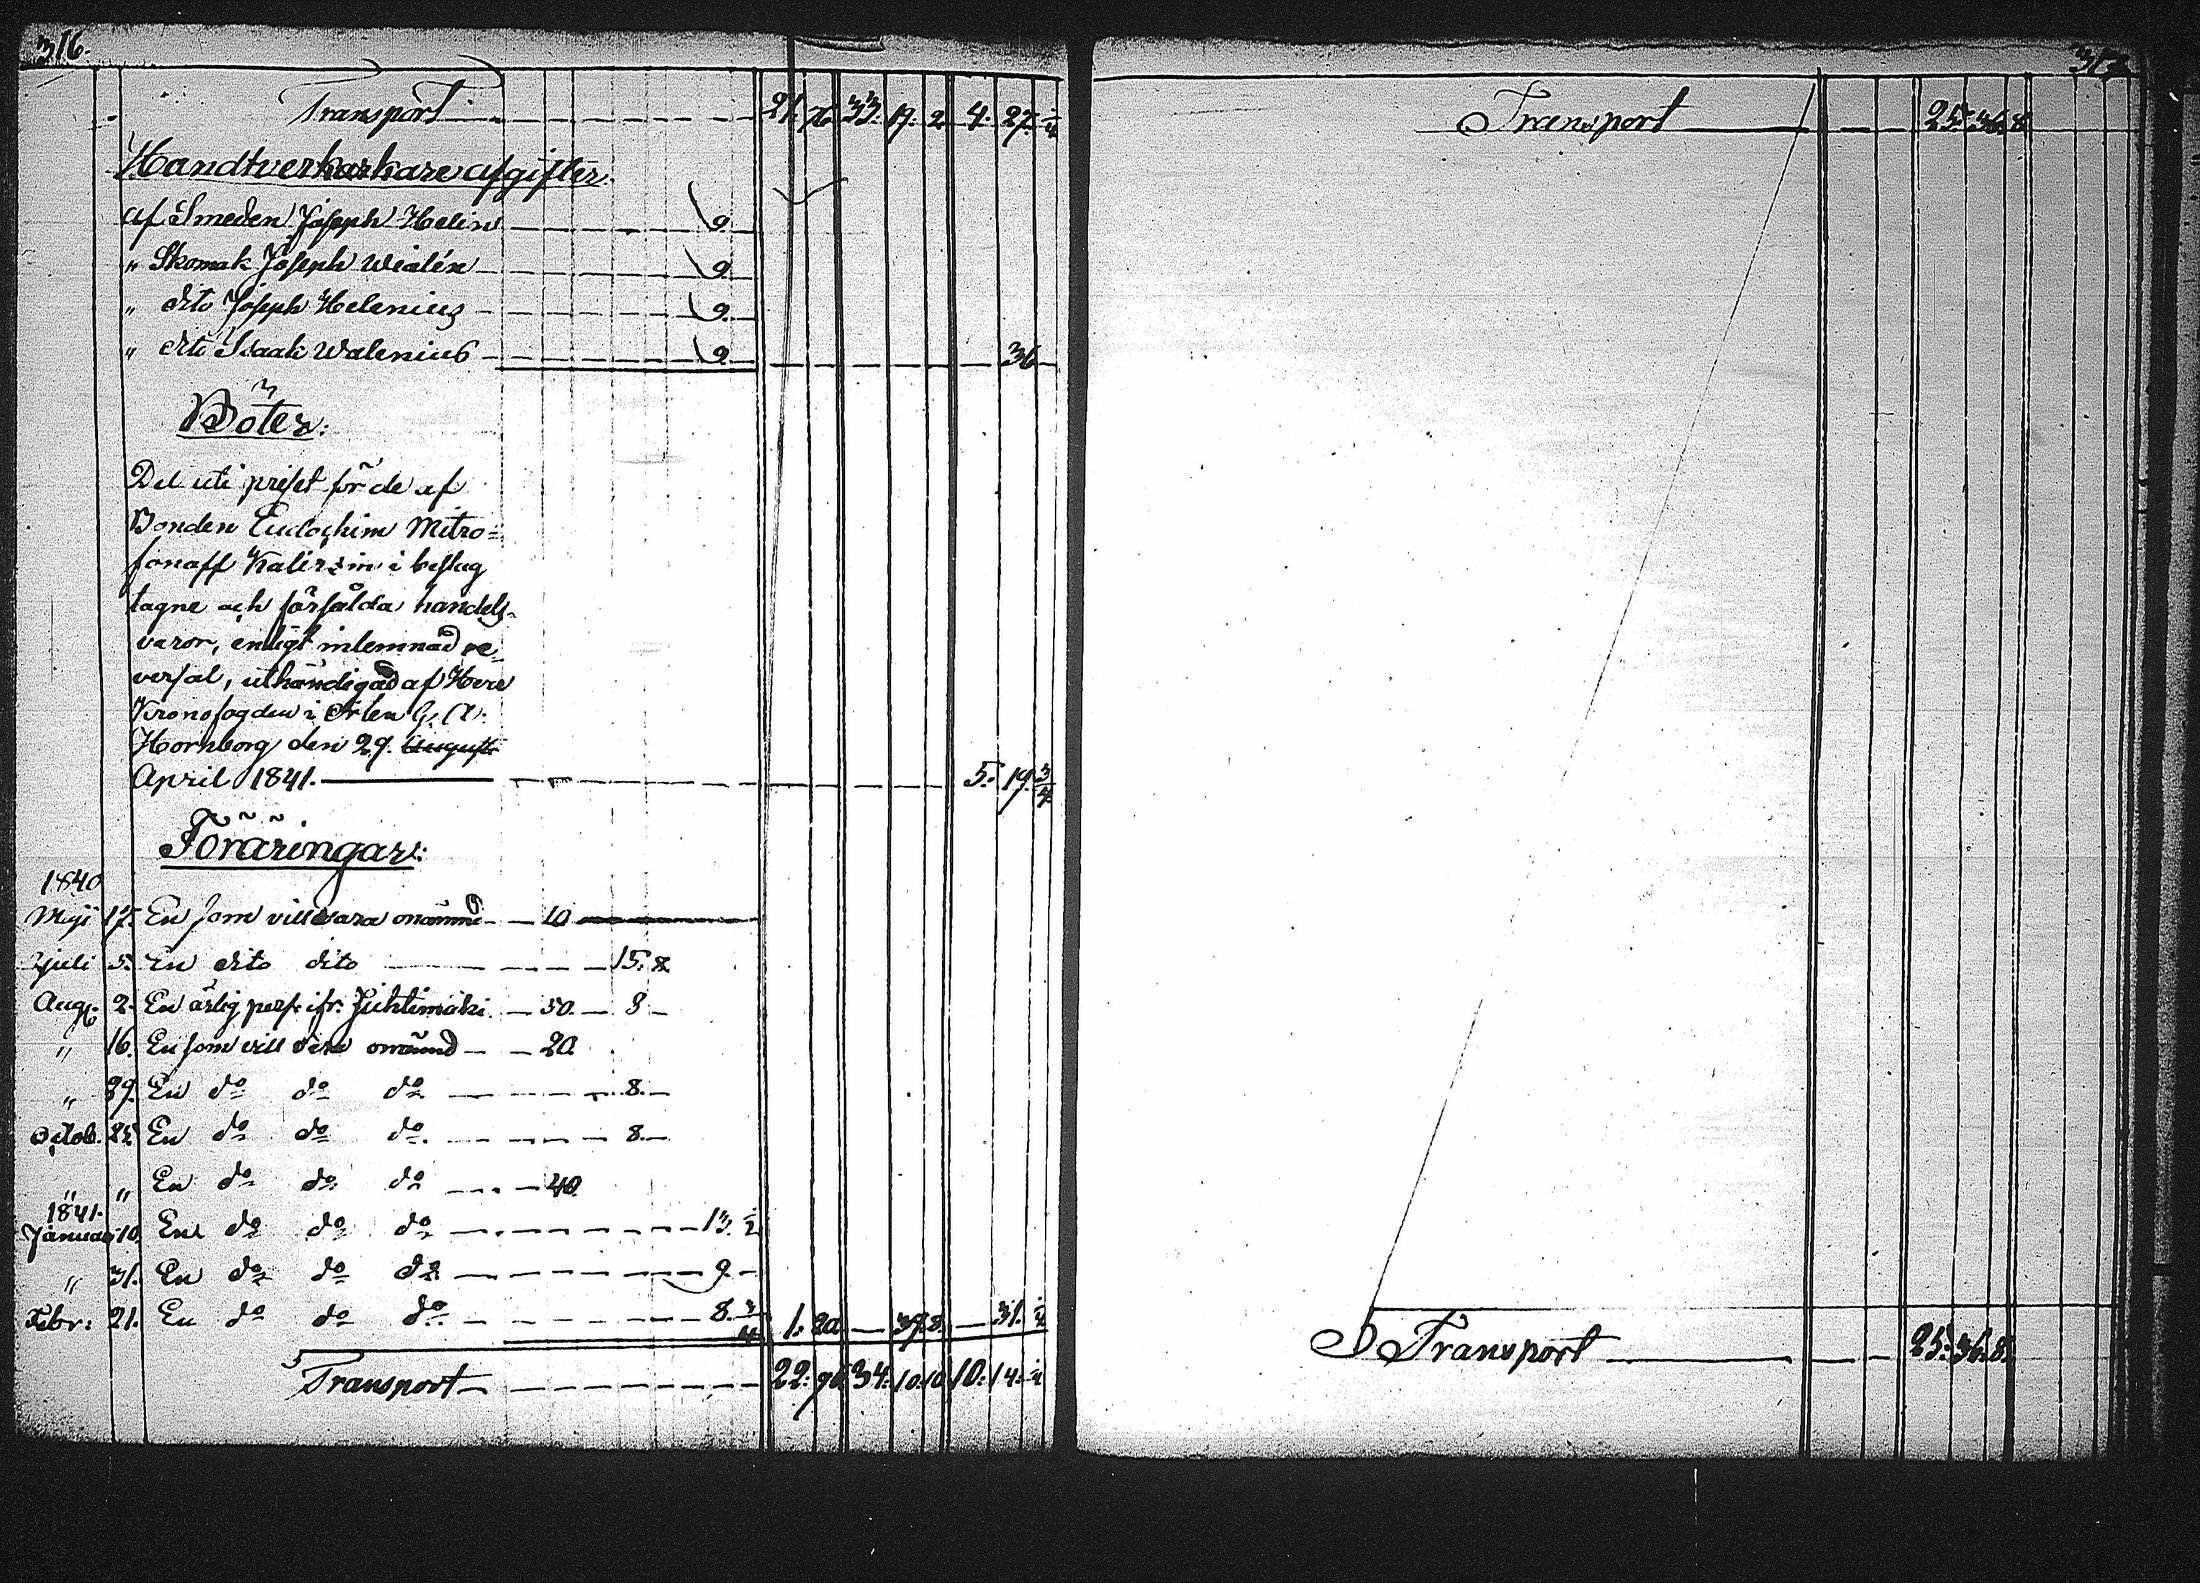 316.
Transport 21. 76. 33. 19. 2. 4. 27. 1/4
Handtverkarkare afgifter.
af Smeden Joseph Helin 9.
" Skomak Joseph Wialén 9.
" dito Joseph Helenius 9.
" dito Isaak Walenius 9. 36
Böter:
Del uti priset för de af
Bonden Eudochim Mitro=
fonaff Kalinin i beslag
tagne och försålda handels-
varor, enligt inlemnad re=
versal, uthändigad af Herr
Kronofogden i Orten G. A.
Hornborg den 29. Augusti
April 1841. 5. 19. 3/4
Föräringar:
1840
Maji 17. En som vill vara onämnd 10
Juli 5. En dito dito 15. 8.
Aug. 2. En ärlig pers. ifr. Juhtimäki 50. 8
" 16. En som vill vara onämnd 20.
" 29. En do do do 8.
Octob. 25 En do do do 8.
" " En do do do 40.
1841.
Januari 10. En do do do 13. 1/2
" 31. En do do do 9.
Febr: 21. En do do do 8. 3/4 1. 20. 39. 8. 31. 1/4
Transport 22. 96. 34. 10. 10. 10. 14. 1/4
317.
Transport 25. 36. 8.
Transport 25. 36. 8.